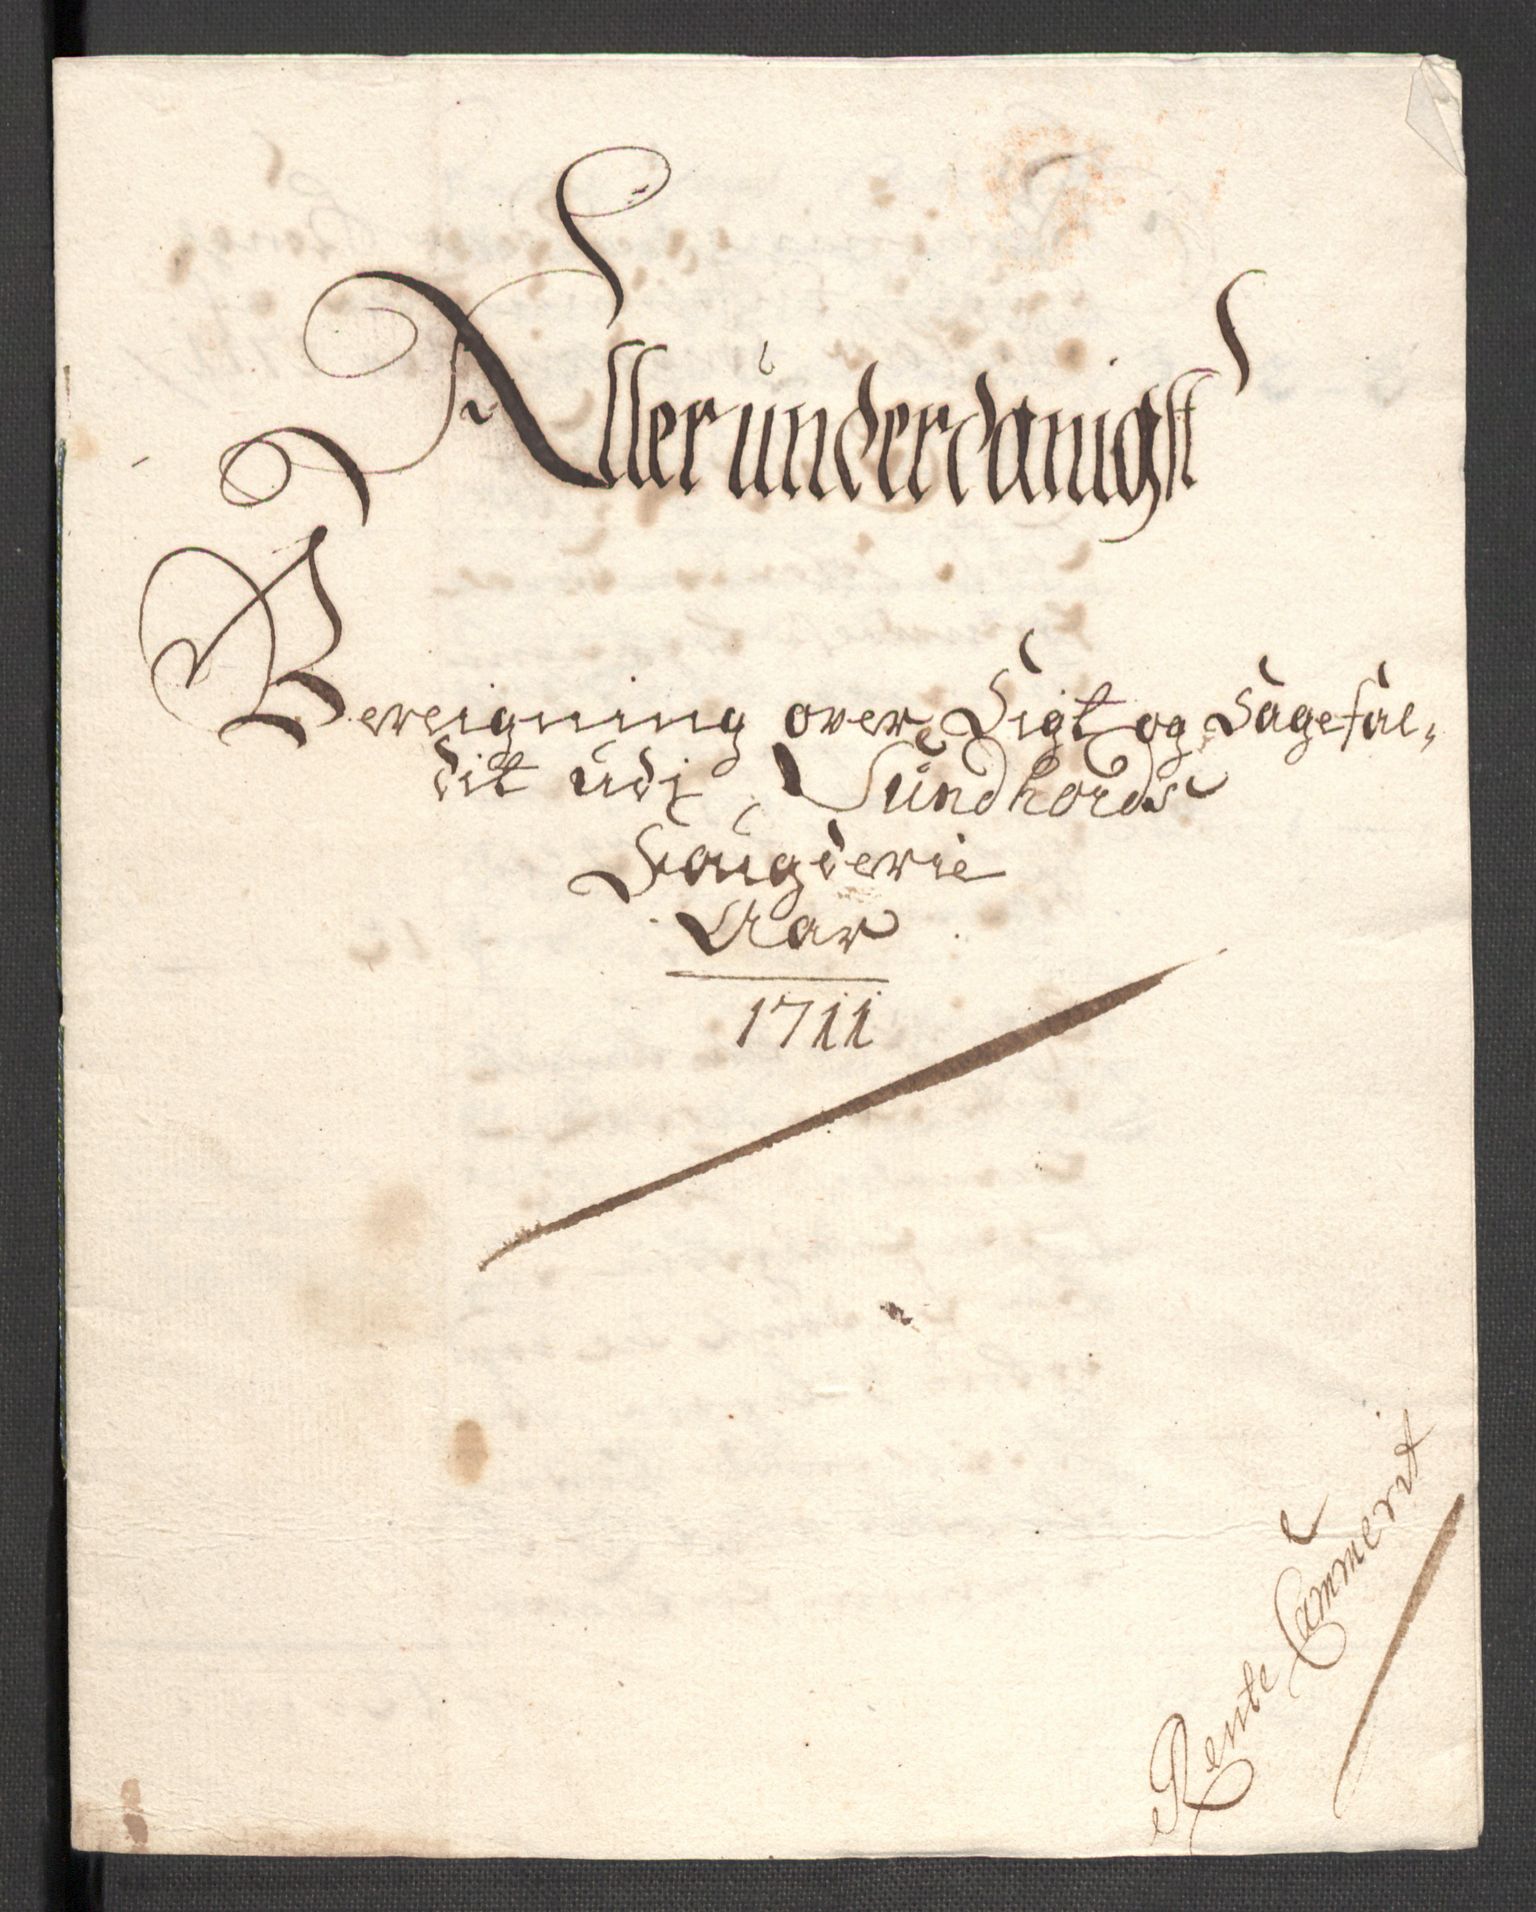 Alleründerdanigst
Bereigning over Sigt og Sagefal-
dit udi Sündhords
Fougderie
Aar
1711
Rente Cammerit